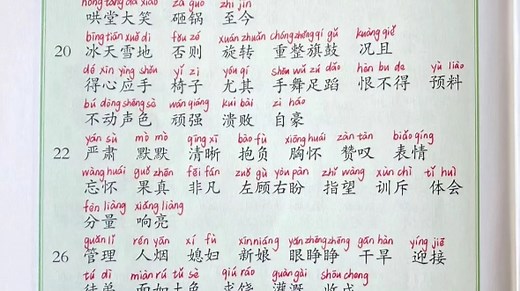 hōng táng dà xiào zá guō zhì jīn
哄堂大笑 砸锅 至今
bīng tiān xuě dì fǒu zé xuán zhuǎn chóng zhěng qí gǔ kuàng qiě
20 冰天雪地 否则 旋转 重整旗鼓 况且
dé xīn yìng shǒu yǐ zi yóu qí shǒu wǔ zú dǎo hèn bu dé yù liào
得心应手 椅子 尤其 手舞足蹈 恨不得 预料
bú dòng shēng sè wán qiáng kuì bài zì háo
不动声色 顽强 溃败 自豪
yán sù mò mò qīng xī bào fù xiōng huái zàn tàn biǎo qíng
22 严肃 默默 清晰 抱负 胸怀 赞叹 表情
wàng huái guǒ zhēn fēi fán zuǒ gù yòu pàn zhǐ wàng xùn chì tǐ huì
忘怀 果真 非凡 左顾右盼 指望 训斥 体会
fèn liàng xiǎng liàng
分量 响亮
guǎn lǐ rén yān xí fù xīn niáng yǎn zhēng zhēng gān hàn yíng jiē
26 管理 人烟 媳妇 新娘 眼睁睁 干旱 迎接
tú dì miàn rú tǔ sè qiú ráo guàn gài shōu cheng
徒弟 面如土色 求饶 灌溉 收成